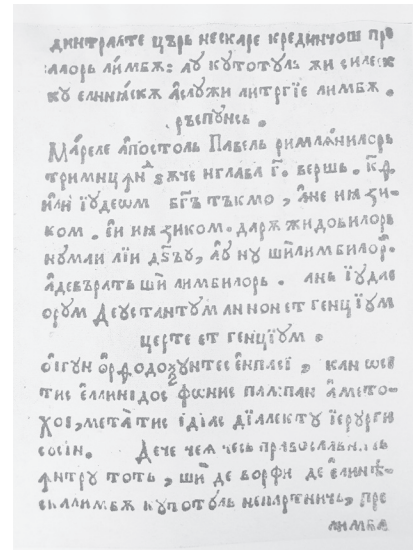 динтралте цѣрь нескаре крединчош пре
алорь лимбѫ: аꙋ кꙋтотꙋль жи силеск
кꙋ елинѣскѫ асложи литргіе лимбѫ.
рѣспꙋнсь.
Мареле апостоль Павель римлѣнилорь
тримицѫнд зѫче нглава г҃. вершь. к҃ѳ
или іꙋдеѡм бг҃ъ тъкмо, ане ши зи
ком. ей ши зиком. дарѫ жидовилорь
нꙋмаи лй дꙋ҃ъꙋ, аꙋ нꙋ ший лимбилорь.
адевърать ши лимбилорь. ань іꙋдае
орꙋм Деꙋстантꙋм ан нон ет генціꙋм
церте ет генціꙋм.
ойгꙋн орѳодоѯꙋнтес енплеі, кан ѡев
тис еллинідос фѡние палпан амето-
хос, метатис ідіас діалектꙋ іерꙋрги
сосін. Дече чеѧ чесь православникь
ѫнтрꙋ тоть, ши де ворфи де елинѣ-
скалимбѫ кꙋпотꙋль непартничь, пре
лимбѧ